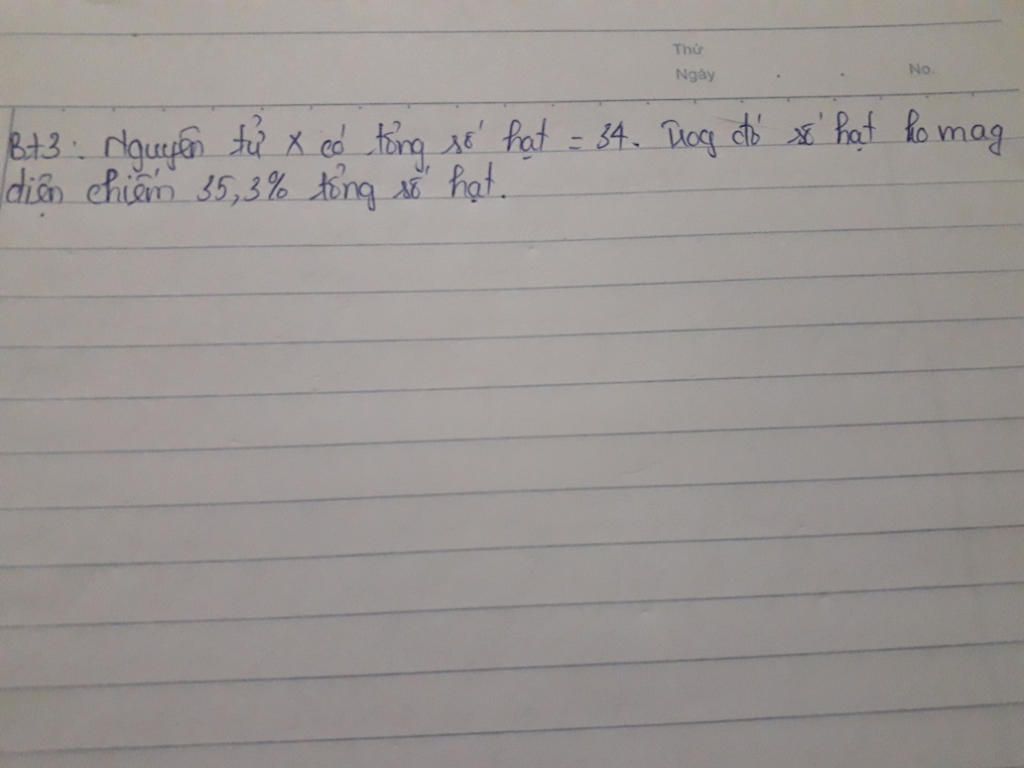 Thứ
Ngày . . No.
Bt3: Nguyên tử X có tổng số hạt = 34. Trog đó số hạt ko mag
điện chiếm 35,3% tổng số hạt.